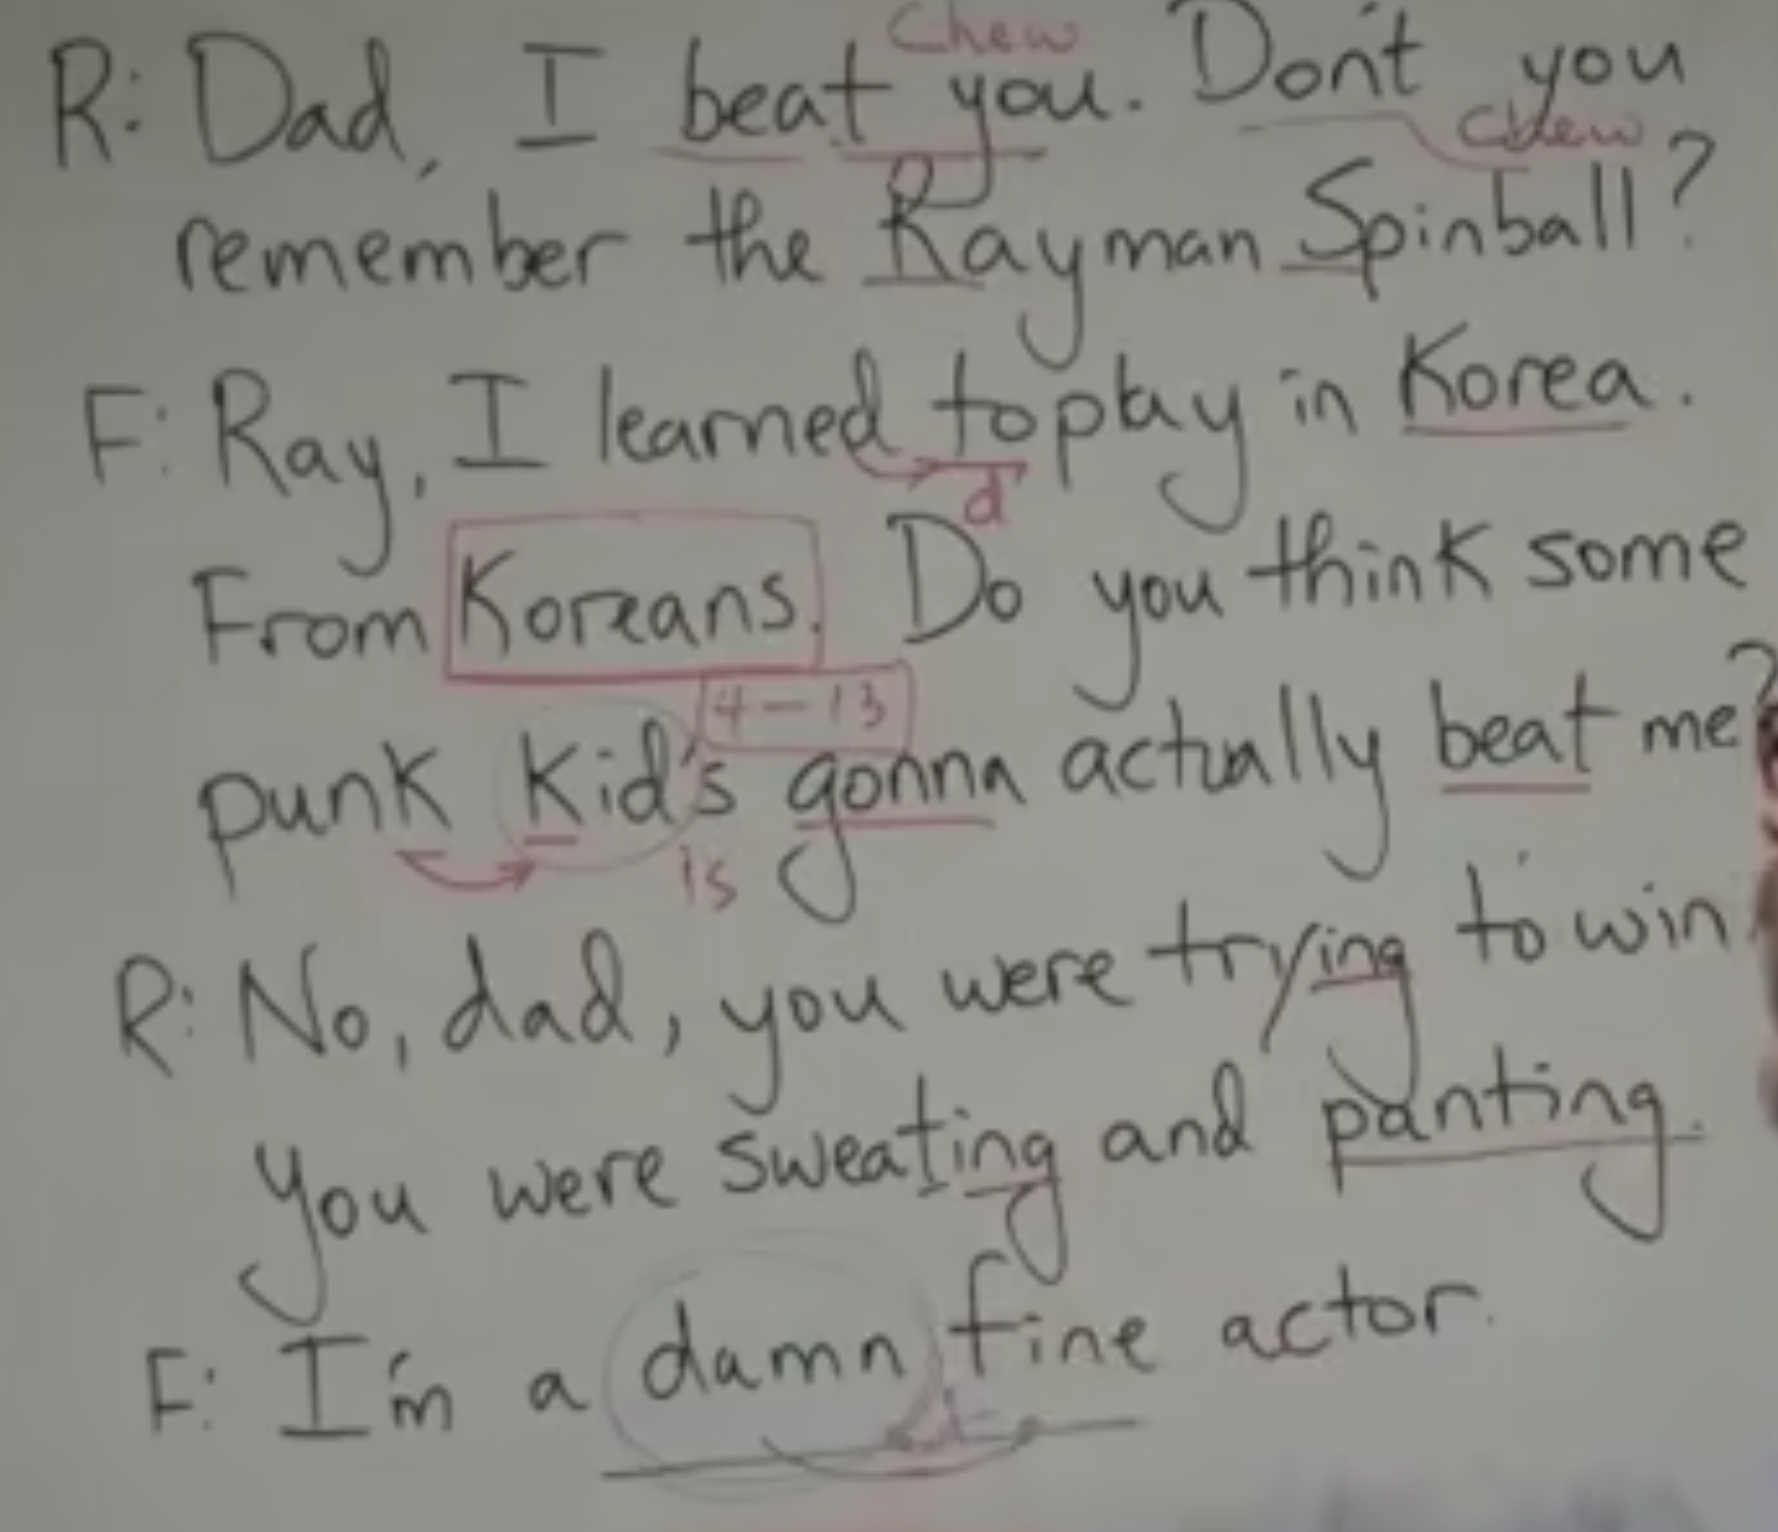 Chew
R: Dad, I beat you. Don't you
Chew
remember the Rayman Spinball?
F: Ray, I learned to play in Korea.
d
From Koreans. Do you think some
4-13
punk kid's gonna actually beat me?
is
R: No, dad, you were trying to win.
You were sweating and panting.
F: I'm a damn fine actor.